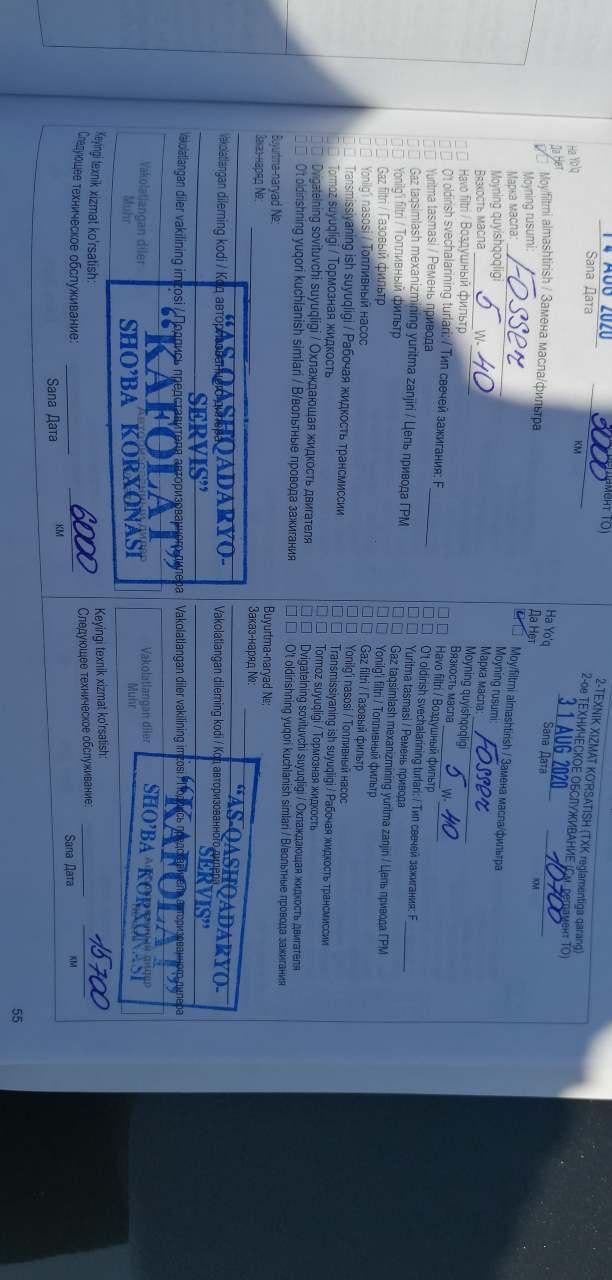 14 AUG 2020
3000
Sana Дата
км
Ha Yo'q
Да Нет
Moyfiltrni almashtirish / Замена масла/фильтра
Moyning rusumi:
Марка масла: Fosser
Moyning quyishqoqligi
Вязкость масла 5 W- 40
Havo filtri / Воздушный фильтр
O't oldirish svechalarining turlari: / Тип свечей зажигания: F
Yuritma tasmasi / Ремень привода
Gaz taqsimlash mexanizmining yuritma zanjiri / Цепь привода ГРМ
Yonilg'i filtri / Топливный фильтр
Gaz filtri / Газовый фильтр
Yonilg'i nasosi / Топливный насос
Transmissiyaning ish suyuqligi / Рабочая жидкость трансмиссии
Tormoz suyuqligi / Тормозная жидкость
Dvigatelning sovituvchi suyuqligi / Охлаждающая жидкость двигателя
O't oldirishning yuqori kuchlanish simlari / В/вольтные провода зажигания
Buyurtma-naryad №:
Заказ-наряд №:
Vakolatlangan dilerning kodi / Код авторизованного дилера
Vakolatlangan diler vakilining imzosi / Подпись представителя авторизованного дилера
Vakolatlangan diler
Muhr
"AS-QASHQADARYO-
SERVIS"
"KAFOLAT"
SHO'BA KORXONASI
Keyingi texnik xizmat ko'rsatish:
Следующее техническое обслуживание:
6000
Sana Дата
км
2-TEXNIK XIZMAT KO'RSATISH (TXK reglamentiga qarang)
2-ое ТЕХНИЧЕСКОЕ ОБСЛУЖИВАНИЕ (См. регламент ТО)
31 AUG 2020
10700
Sana Дата
км
Ha Yo'q
Да Нет
Moyfiltrni almashtirish / Замена масла/фильтра
Moyning rusumi:
Марка масла: Fosser
Moyning quyishqoqligi
Вязкость масла 5 W- 40
Havo filtri / Воздушный фильтр
O't oldirish svechalarining turlari: / Тип свечей зажигания: F
Yuritma tasmasi / Ремень привода
Gaz taqsimlash mexanizmining yuritma zanjiri / Цепь привода ГРМ
Yonilg'i filtri / Топливный фильтр
Gaz filtri / Газовый фильтр
Yonilg'i nasosi / Топливный насос
Transmissiyaning ish suyuqligi / Рабочая жидкость трансмиссии
Tormoz suyuqligi / Тормозная жидкость
Dvigatelning sovituvchi suyuqligi / Охлаждающая жидкость двигателя
O't oldirishning yuqori kuchlanish simlari / В/вольтные провода зажигания
Buyurtma-naryad №:
Заказ-наряд №:
Vakolatlangan dilerning kodi / Код авторизованного дилера
Vakolatlangan diler vakilining imzosi / Подпись представителя авторизованного дилера
Vakolatlangan diler
Muhr
"AS-QASHQADARYO-
SERVIS"
"KAFOLAT"
SHO'BA KORXONASI
Keyingi texnik xizmat ko'rsatish:
Следующее техническое обслуживание:
15700
Sana Дата
км
55